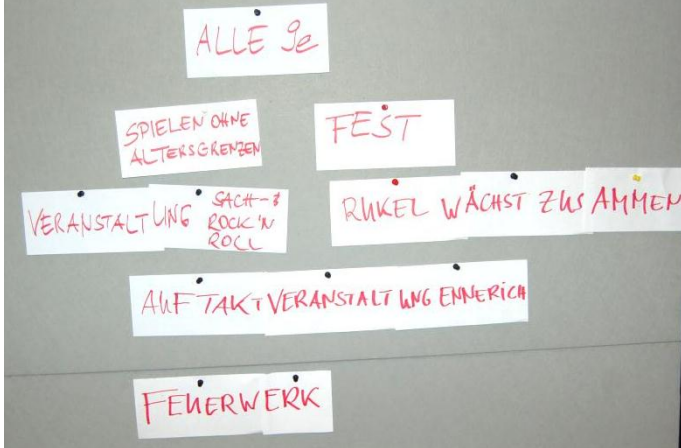 ALLE 9e
SPIELEN OHNE
ALTERSGRENZEN
FEST
VERANSTALTUNG SACH-&
ROCK'N
ROLL
RUKEL WÄCHST ZUSAMMEN
AUFTAKTVERANSTALTUNG ENNERICH
FEUERWERK